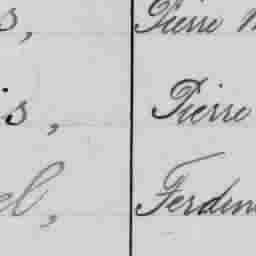 s, Pierre
is, Pierre
el, Ferdin